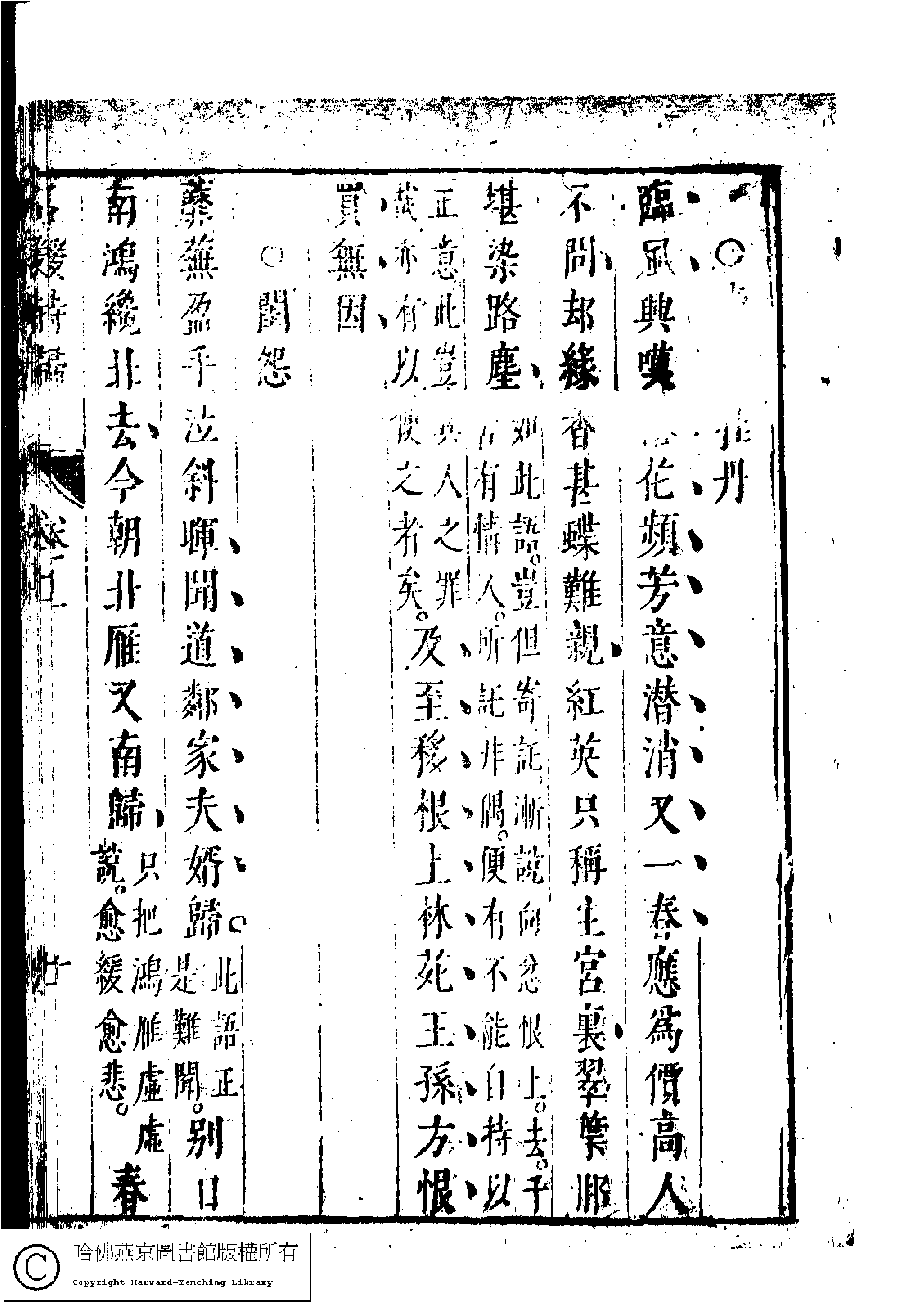 ○牡丹
臨風興嘆花頻芳意潜消又一春應爲價高人
不問却緣香甚蝶難親紅英只稱生宮裏翠葉那
堪染路塵
如此語。豈但寄託漸說向忿恨上。去。予
言有情人。所託非偶。便有不能自持以
正意。此豈其人之罪
哉亦有以使之者矣。
及至移根上林苑王孫方恨
買無因
○閨怨
蘼蕪盈手泣斜暉聞道鄰家夫婿歸。
此語正
是難聞。
別日
南鴻纔北去今朝北雁又南歸
只把鴻雁虛虛
說。愈緩愈悲。
春
名媛詩歸
卷十一
廿
哈佛燕京圖書館版權所有
Copyright Harvard-Yenching Library